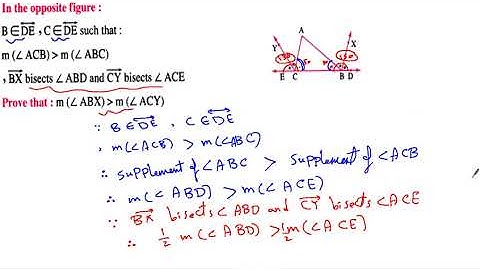 In the opposite figure :
B ∈ DE , C ∈ DE such that :
m (∠ ACB) > m (∠ ABC)
, BX bisects ∠ ABD and CY bisects ∠ ACE
Prove that : m (∠ ABX) > m (∠ ACY)
A
Y
X
E C B D
∵ B ∈ DE , C ∈ DE
, m(∠ACB) > m(∠ABC)
∴ supplement of ∠ABC > supplement of ∠ACB
∴ m(∠ABD) > m(∠ACE)
∵ BX bisects ∠ABD and CY bisects ∠ACE
∴ 1/2 m(∠ABD) > 1/2 m(∠ACE)